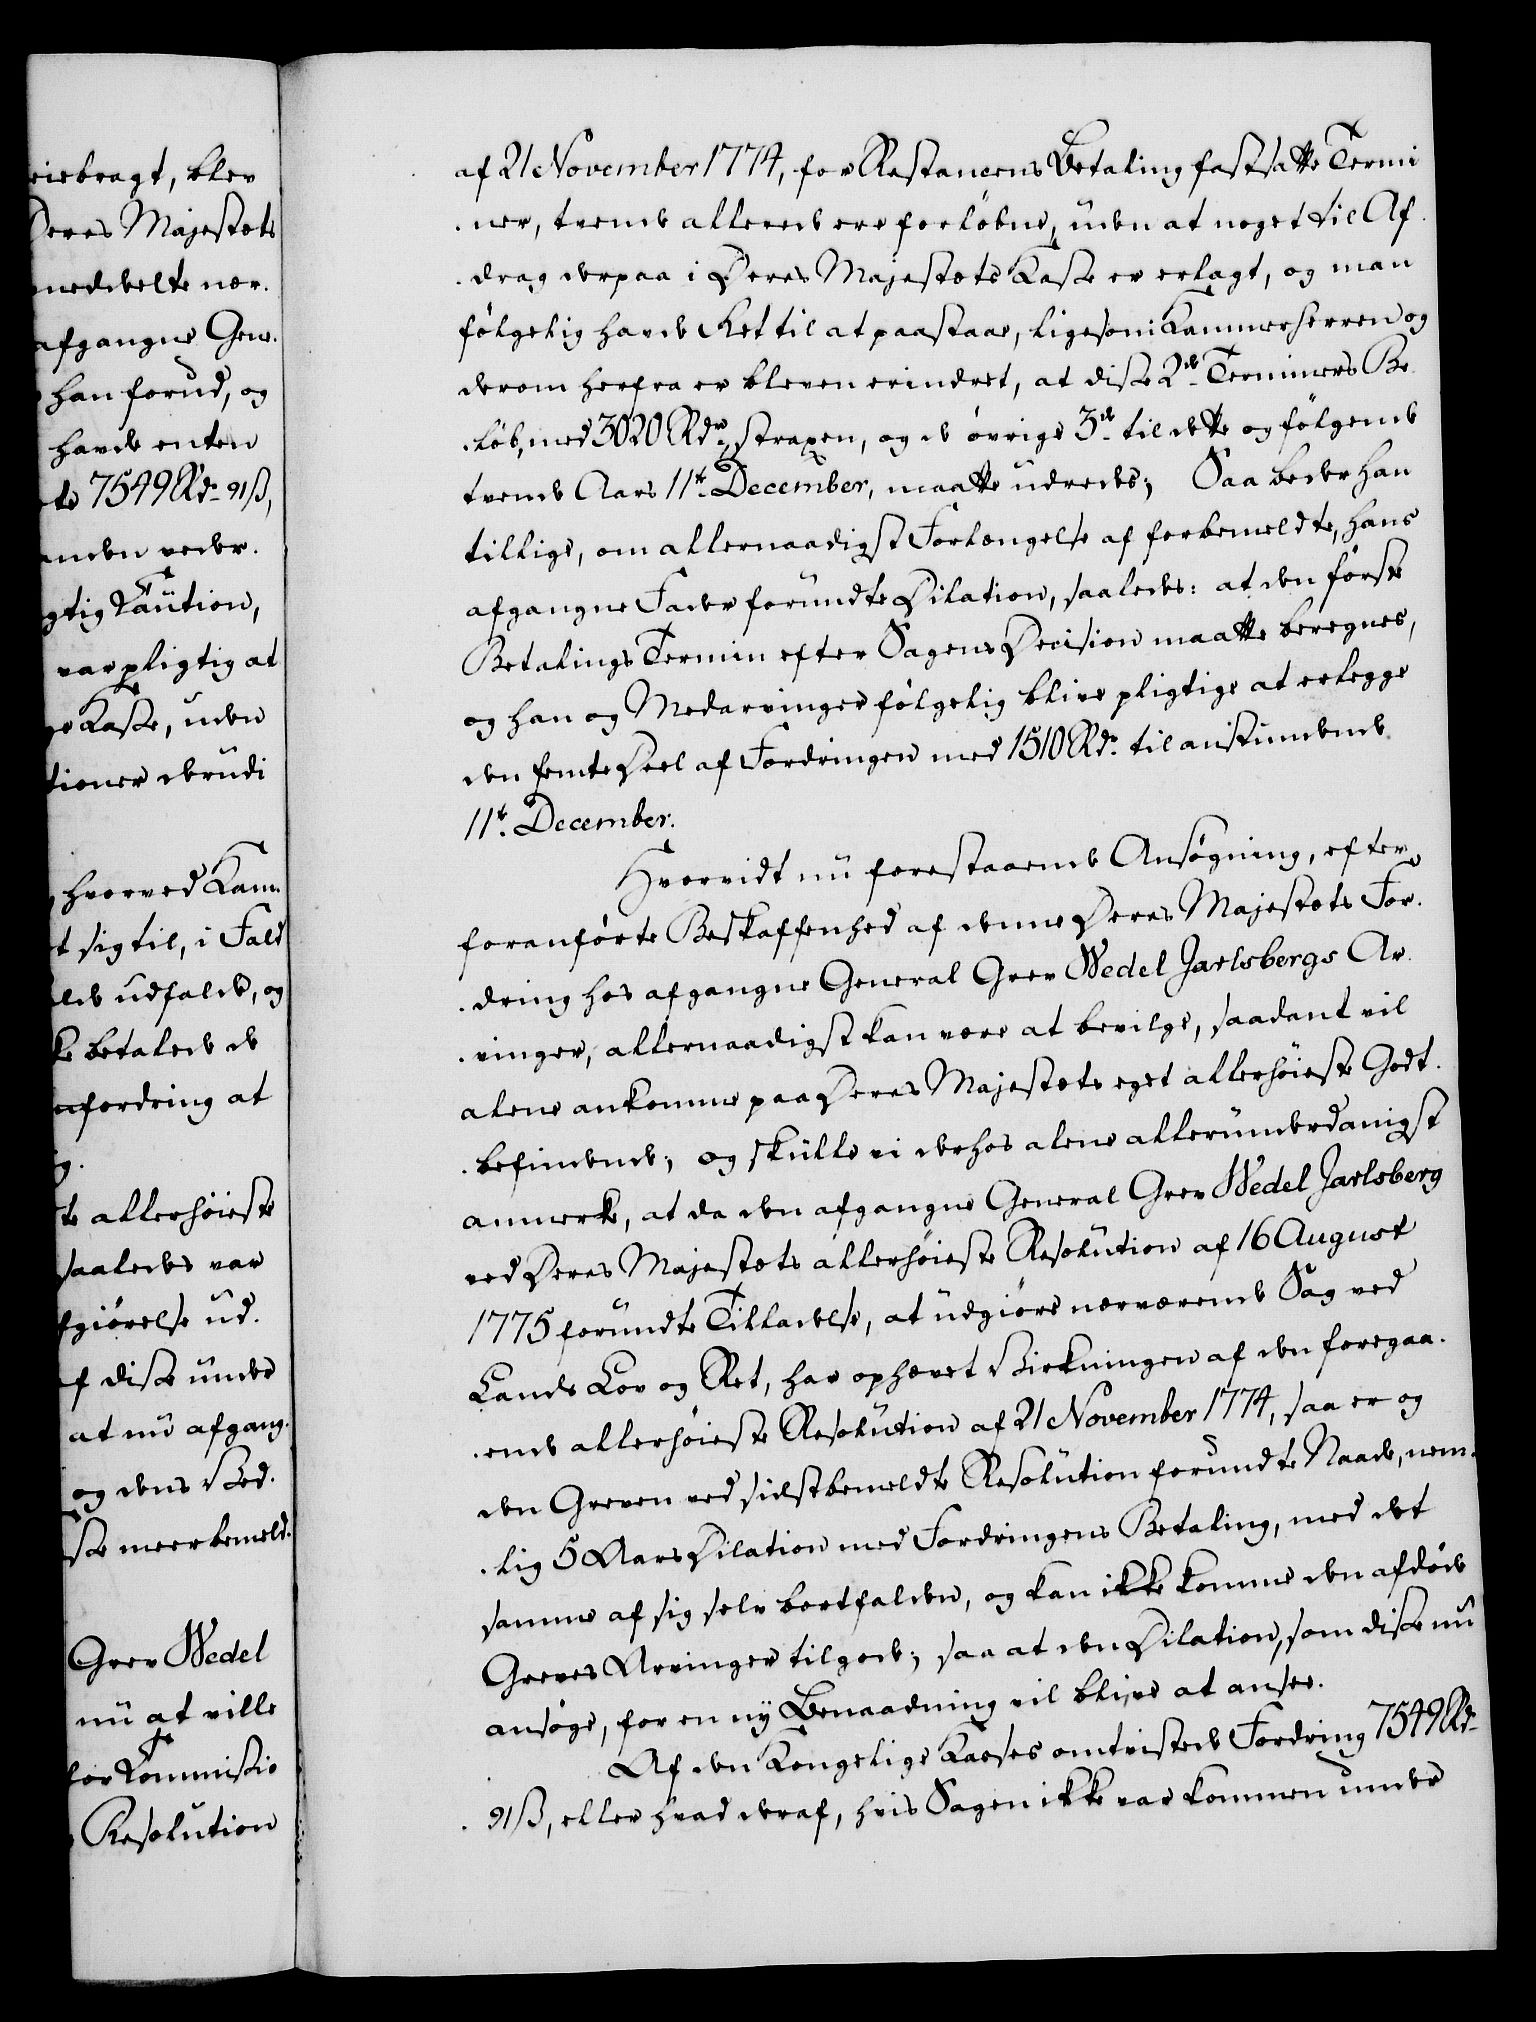 eiebragt, blev
Deres Majestæts
meddeelte nær-
afgangne Gene-
han forud, og
havde enten
te 7549 Rd. 91 ß,
anden veder-
gtig Caution,
var pligtig at
ge Kasse, uden
tioner derudi
hvorved Kam-
t sig til, i Fald
lde udfalde, og
ke betalede de
afordring at
g.
te allerhøieste
saaledes var
fgiørelse ud-
f disse under
at nu afgang-
og dens Bed-
ske meerbemeld-
Grev Wedel
nu at ville
for Commissio
Resolution
af 21 November 1774, for Restancens Betaling fastsatte Termi-
ner, tvende allerede ere forløbne, uden at noget til Af-
drag derpaa i Deres Majestæts Kasse er erlagt, og man
følgelig havde Ret til at paastaae, ligesom Kammerherren og
derom herfra er bleven erindret, at disse 2de Terminers Be-
løb, med 3020 Rdr, straxen, og de øvrige 3de til dette og følgende
tvende Aars 11te December, maatte udredes; Saa beder han
tillige, om allernaadigst Forlængelse af forbemeldte, hans
afgangne Fader forundte Dilation, saaledes: at den første
Betalings Termin efter Sagens Decision maatte beregnes,
og han og Medarvinger følgelig blive pligtige at erlegge
den femte Deel af Fordringen med 1510 Rdr. til anstundende
11te December.
Hvorvidt nu forestaaende Ansøgning, efter
foranførte Beskaffenhed af denne Deres Majestæts For-
dring hos afgangne General Grev Wedel Jarlsbergs Ar-
vinger, allernaadigst kan være at bevilge, saadant vil
alene ankomme paa Deres Majestæts eget allerhøieste Godt-
befindende; og skulle vi derhos alene allerunderdanigst
anmerke, at da den afgangne General Grev Wedel Jarlsberg
ved Deres Majestæts allerhøieste Resolution af 16 August
1775 forundte Tilladelse, at udgiøre nærværende Sag ved
Lands Lov og Ret, har ophævet Virkningen af den foregaa-
ende allerhøieste Resolution af 21 November 1774, saa er og
den Greven ved sidstbemeldte Resolution forundte Naade, nem-
lig 5 Aars Dilation med Fordringens Betaling, med det
samme af sig selv bortfalden, og kan ikke komme den afdøde
Greves Arvinger tilgode; saa at den Dilation, som disse nu
ansøge, for en ny Benaadning vil blive at ansee.
Af den Kongelige Kasses omtvistede Fordring 7549 Rdr
91 ß, eller hvad deraf, hvis Sagen ikke var kommen under